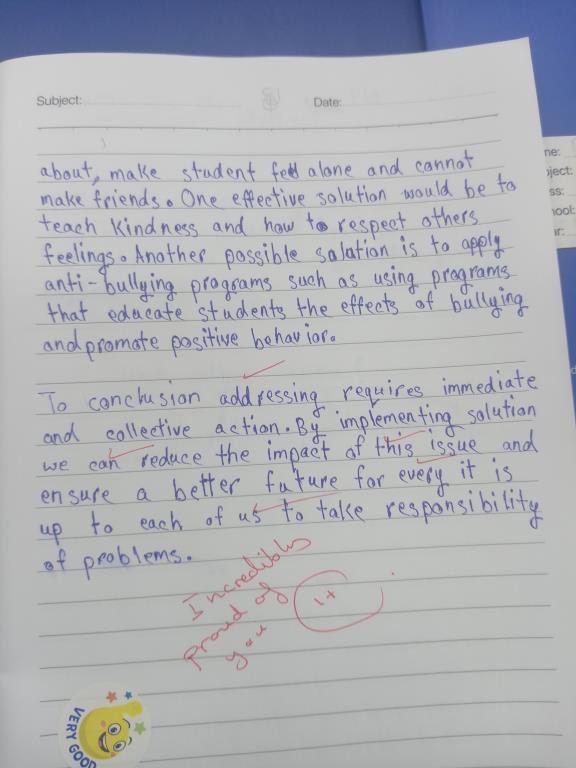 Subject:
Date:
about, make student feel alone and cannot
make friends. One effective solution would be to
teach kindness and how to respect others
feelings. Another possible salation is to apply
anti-bullying programs such as using programs
that educate students the effects of bullying
and promote positive behavior.
To conclusion addressing requires immediate
and collective action. By implementing solution
we can reduce the impact of this issue and
ensure a better future for every it is
up to each of us to take responsibility
of problems.
Incredibles
proud of
you
1+
VERY GOOD
ne:
ject:
ss:
hool:
r: